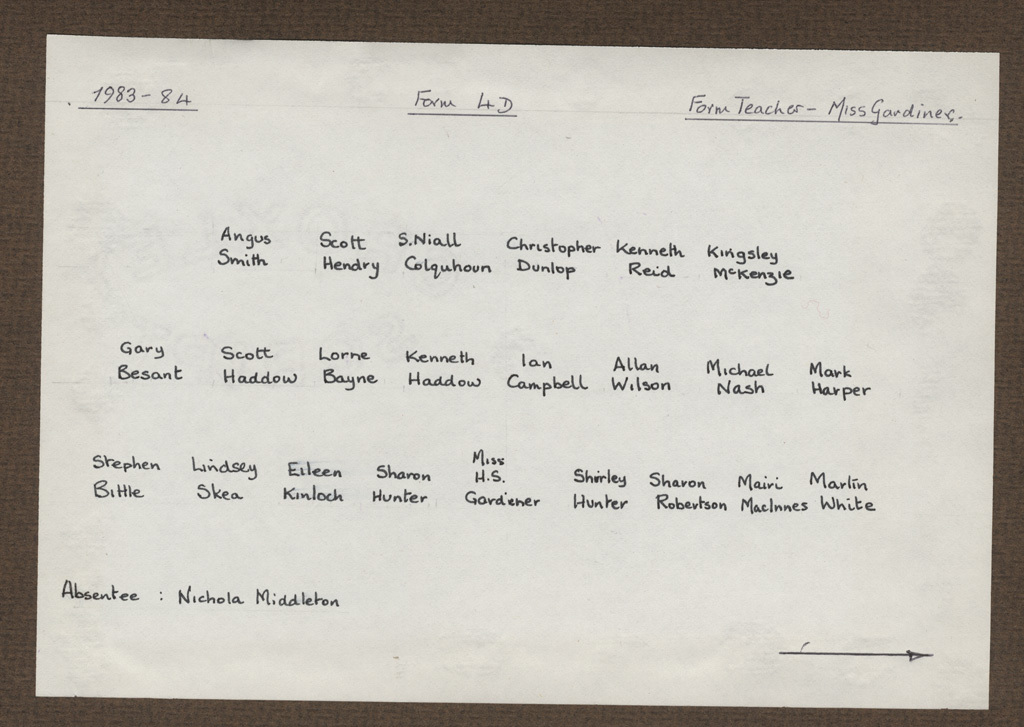 1983-84 Form 4D Form Teacher - Miss Gardiner.
Angus Scott S.Niall Christopher Kenneth Kingsley
Smith Hendry Colquhoun Dunlop Reid McKenzie
Gary Scott Lorne Kenneth Ian Allan Michael Mark
Besant Haddow Bayne Haddow Campbell Wilson Nash Harper
Miss
Stephen Lindsey Eileen Sharon H.S. Shirley Sharon Mairi Martin
Bittle Skea Kinloch Hunter Gardiener Hunter Robertson MacInnes White
Absentee : Nichola Middleton